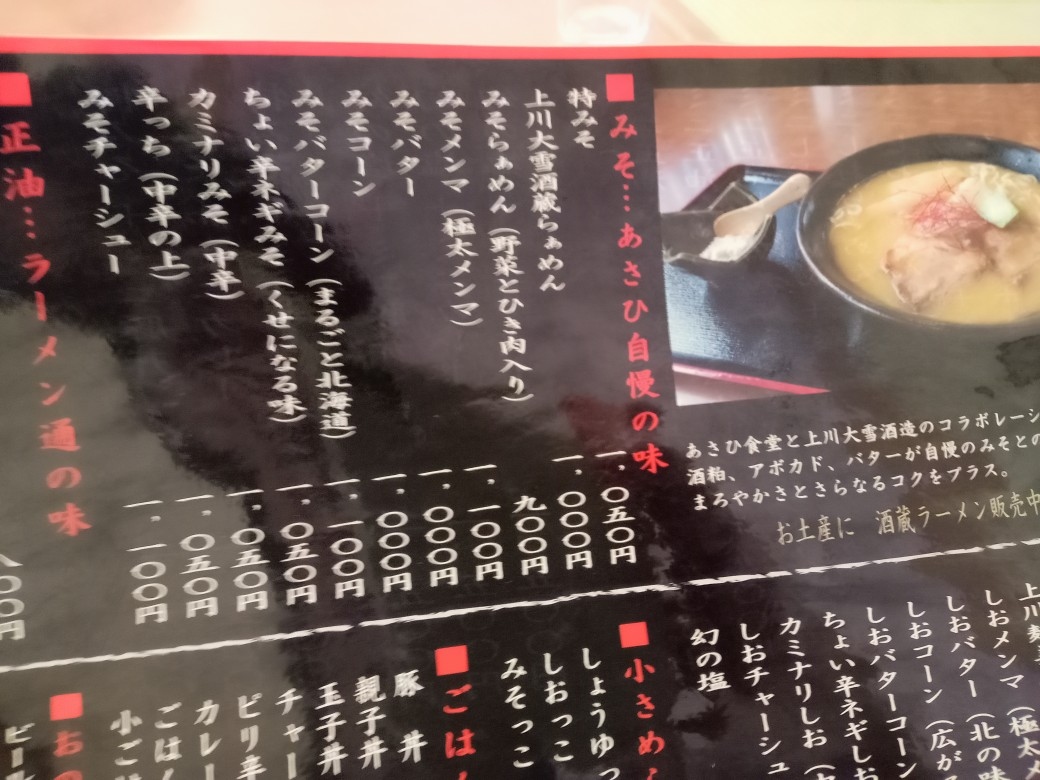 あさひ食堂と上川大雪酒造のコラボレーシ
酒粕、アボカド、バターが自慢のみそとの
まろやかさとさらなるコクをプラス。
お土産に 酒蔵ラーメン販売中
■みそ…あさひ自慢の味
特みそ 一,〇五〇円
上川大雪酒蔵らぁめん 一,〇〇〇円
みそらぁめん（野菜とひき肉入り） 九〇〇円
みそメンマ（極太メンマ） 一,一〇〇円
みそバター 一,〇〇〇円
みそコーン 一,〇〇〇円
みそバターコーン（まるごと北海道） 一,一〇〇円
ちょい辛ネギみそ（くせになる味） 一,〇五〇円
カミナリみそ（中辛） 一,〇五〇円
辛っち（中辛の上） 一,〇五〇円
みそチャーシュー 一,一〇〇円
■正油…ラーメン通の味
八〇〇円
上川
しおメンマ（極太メ
しおバター（北の味
しおコーン（広が
しおバターコーン
ちょい辛ネギしお
カミナリしお
しおチャーシュ
幻の塩
■小さめ
しょうゆっ
しおっこ
みそっこ
■ごはん
豚丼
親子丼
玉子丼
チャー
ピリ辛
カレー
ごはん
小ごは
■お
ビール